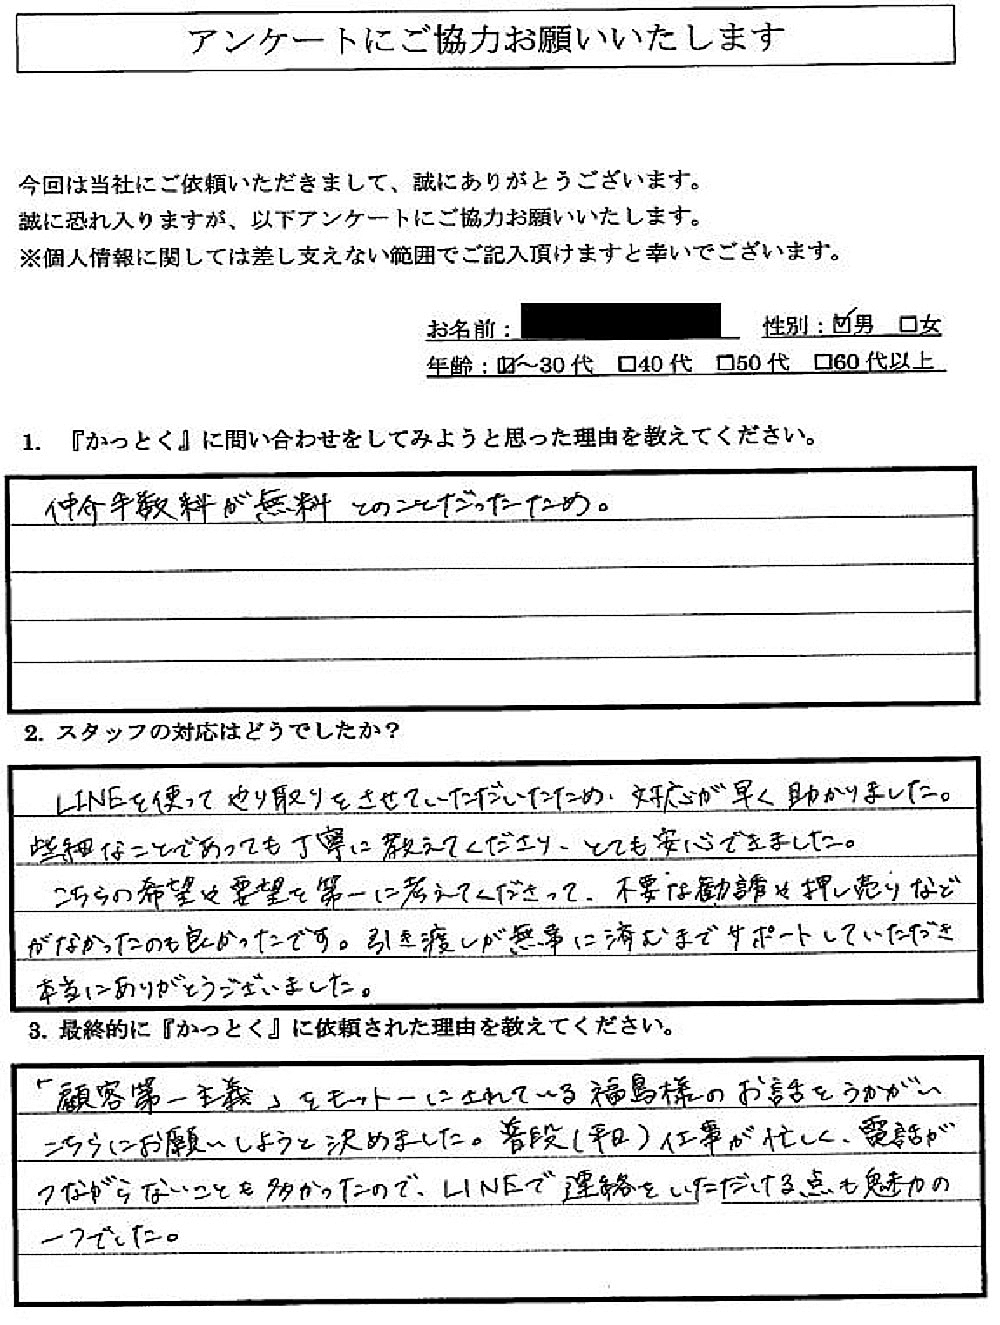 アンケートにご協力お願いいたします
今回は当社にご依頼いただきまして、誠にありがとうございます。
誠に恐れ入りますが、以下アンケートにご協力お願いいたします。
※個人情報に関しては差し支えない範囲でご記入頂けますと幸いでございます。
お名前： 性別：☑男 □女
年齢：☑～30代 □40代 □50代 □60代以上
1. 『かっとく』に問い合わせをしてみようと思った理由を教えてください。
仲介手数料が無料とのことだったため。
2. スタッフの対応はどうでしたか？
LINEを使ってやり取りをさせていただいたため、対応が早く助かりました。
些細なことであっても丁寧に教えてくださり、とても安心できました。
こちらの希望や要望を第一に考えてくださって、不要な勧誘や押し売りなど
がなかったのも良かったです。引き渡しが無事に済むまでサポートしていただき
本当にありがとうございました。
3. 最終的に『かっとく』に依頼された理由を教えてください。
「顧客第一主義」をモットーにされている福島様のお話をうかがい
こちらにお願いしようと決めました。普段(平日)仕事が忙しく、電話が
つながらないことも多かったので、LINEで連絡をいただける点も魅力の
一つでした。